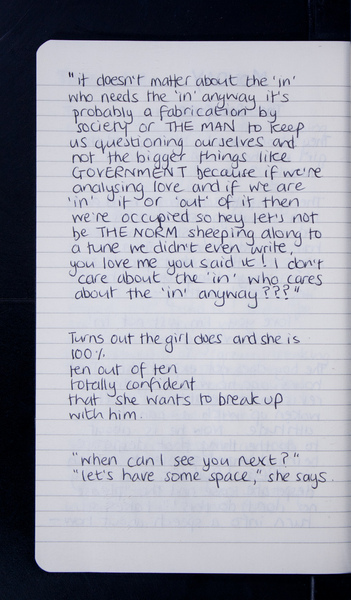 "it doesn't matter about the 'in'
who needs the 'in' anyway it's
probably a fabrication by
society or THE MAN to keep
us questioning ourselves and
not the bigger things like
GOVERNMENT because if we're
analysing love and if we are
'in' it or 'out' of it then
we're occupied so hey let's not
be THE NORM sheeping along to
a tune we didn't even write,
you love me you said it! I don't
care about the 'in' who cares
about the 'in' anyway???"
Turns out the girl does and she is
100%
ten out of ten
totally confident
that she wants to break up
with him.
"when can I see you next?"
"let's have some space," she says.